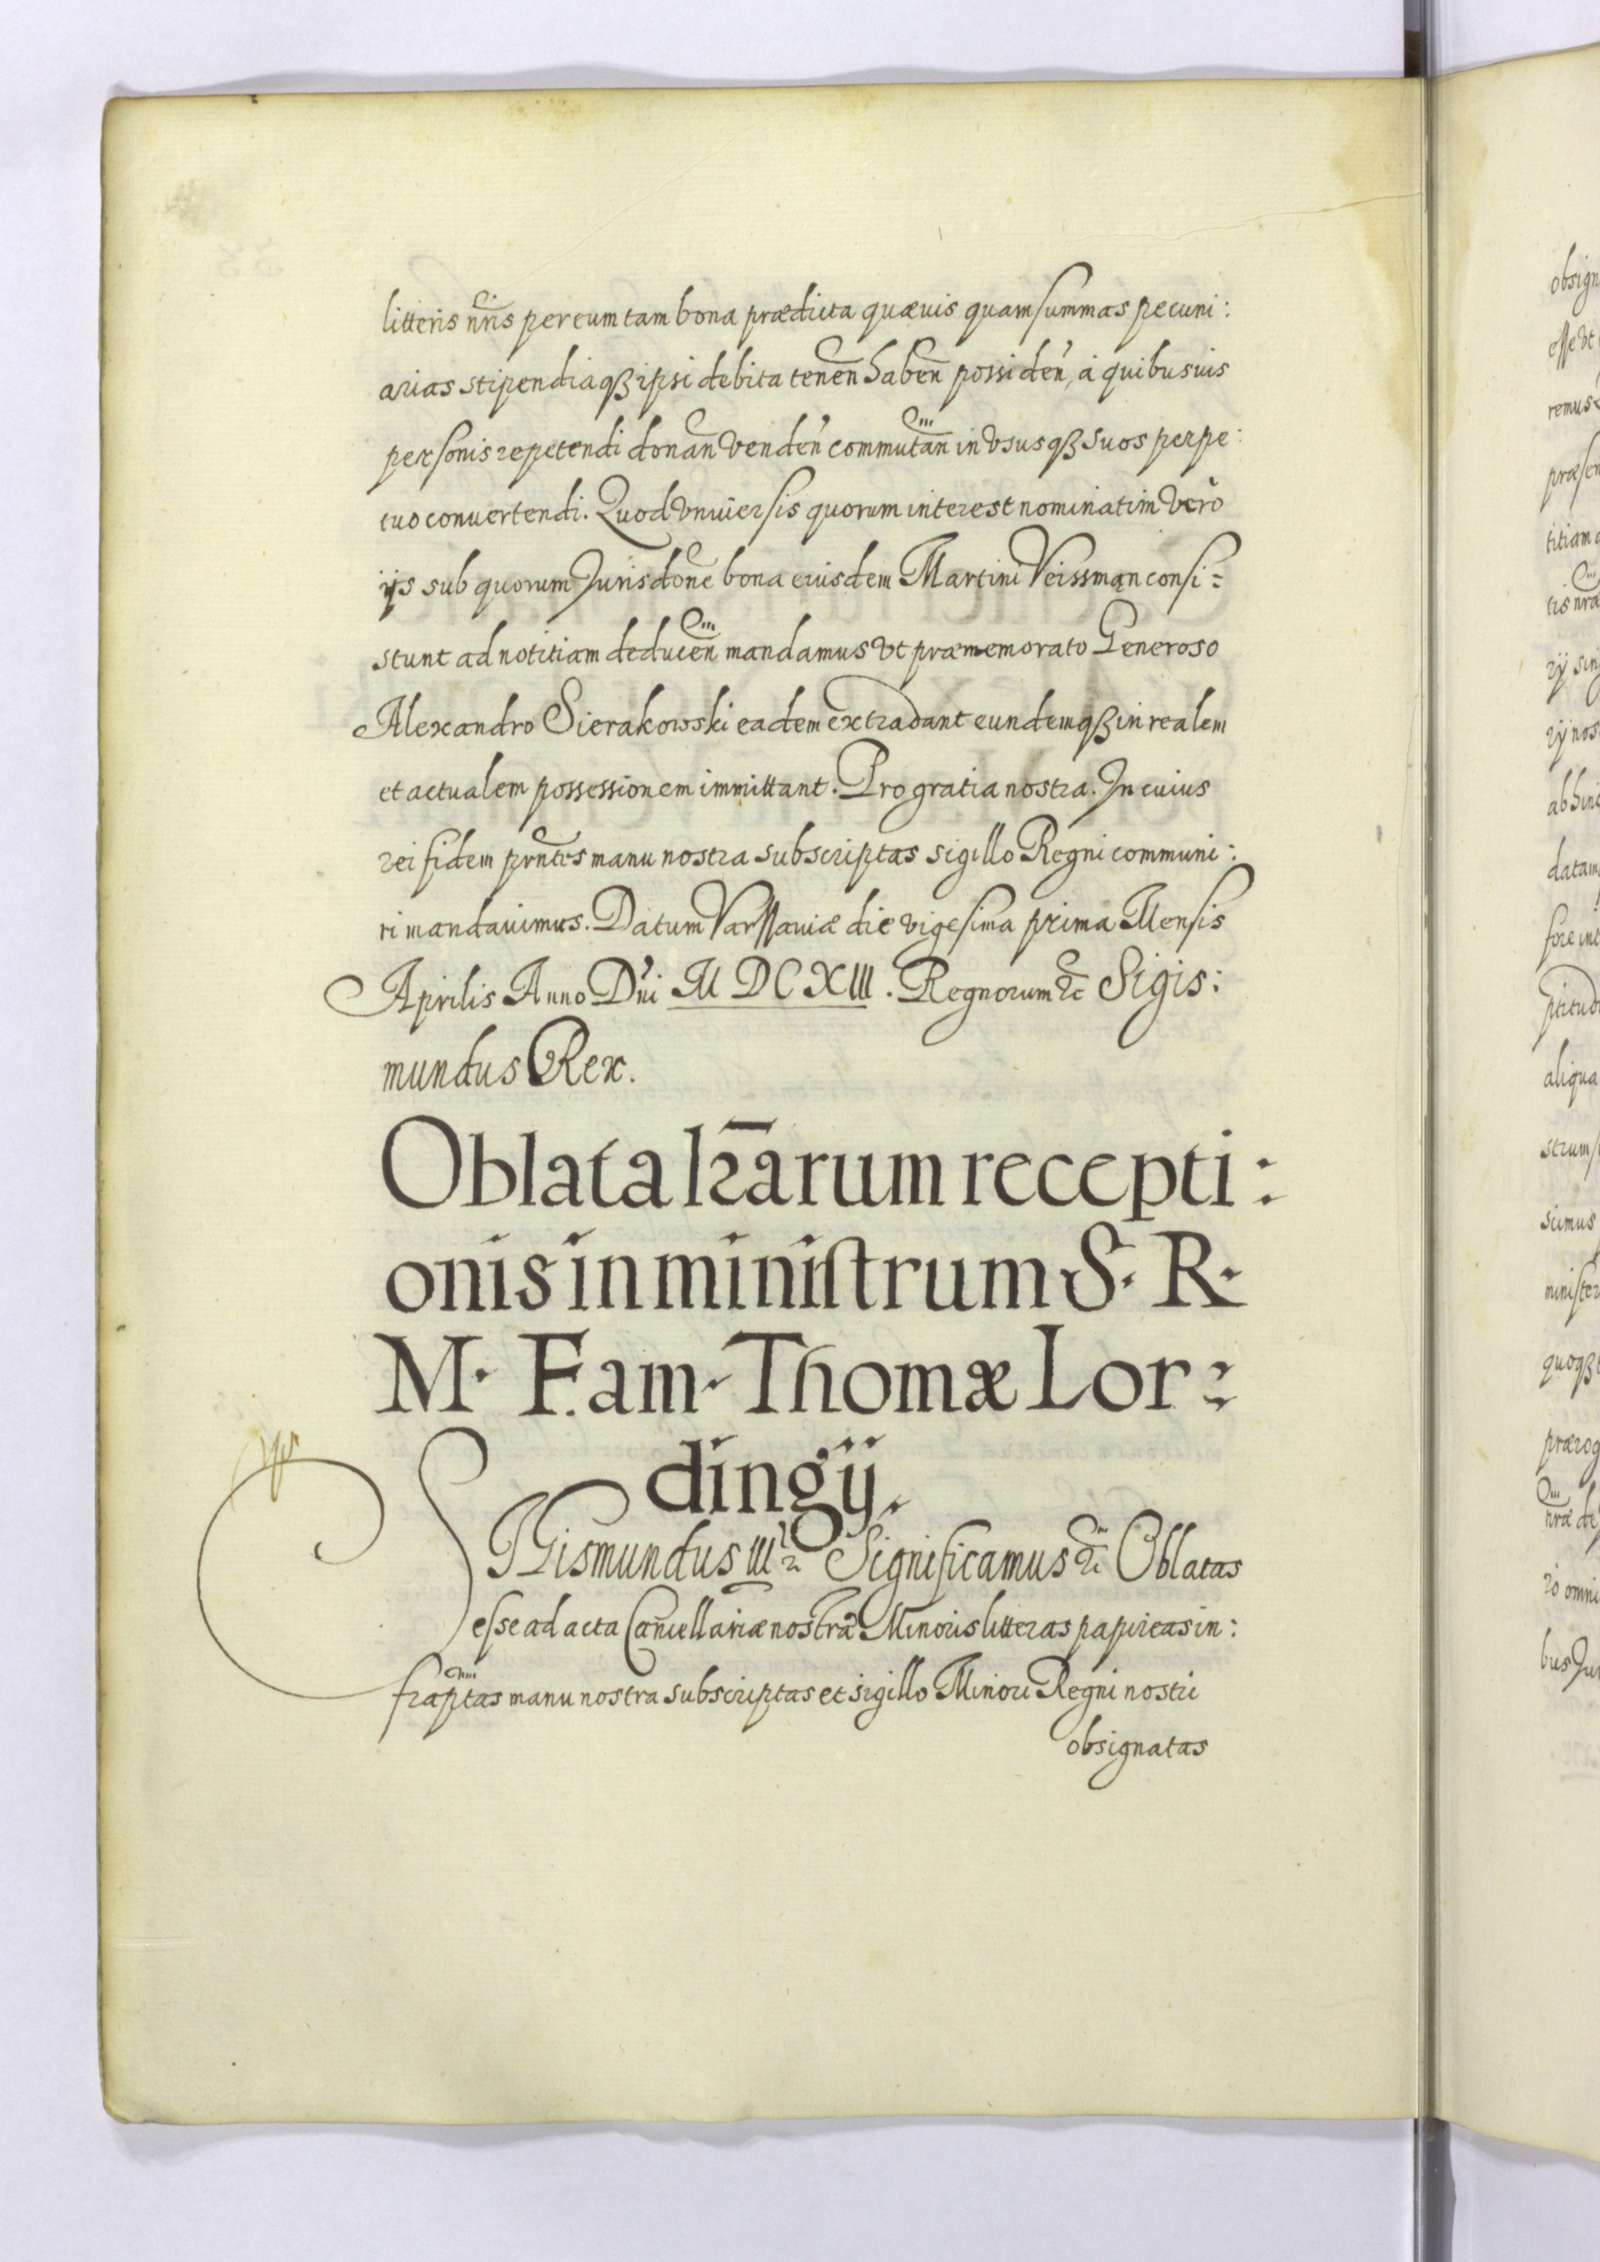 litteris nr̃is per eum tam bona prædicta quævis quam summas pecuni:
arias stipendiaqß ipsi debita tenen̄ haben̄ possiden̄, à quibusuis
personis repetendi donan̄ venden̄ commutan̄ in vsusqß suos perpe:
tuo conuertendi. Quod vniuersis quorum interest nominatim verò
ijs sub quorum Jurisdōne bona eiusdem Martini Veissman consi:
stunt ad notitiam deducen̄ mandamus vt præmemorato Generoso
Alexandro Sierakowski eadem extradant eundemqß in realem
et actualem possessionem immittant. Pro gratia nostra. In cuius
rei fidem prn̄tes manu nostra subscriptas sigillo Regni communi:
ri mandauimus. Datum Varssauiæ die vigesima prima Mensis
Aprilis Anno Dn̄i M DC XIII. Regnorum &c Sigis:
mundus Rex.
Oblata lr̄arum recepti:
onis in ministrum S. R.
M. Fam. Thomæ Lor:
dingij.
SIGismundus III &c Significamus &c Oblatas
esse ad acta Cancellariæ nostræ Minoris litteras papireas in:
frap̄tas manu nostra subscriptas et sigillo Minori Regni nostri
obsignatas
obsign
esse vt
remus
præsen
titiam
tis nr̄a
rij
rij nos
ab hinc
datam
fore int
ptitud
aliqua
strum
scimus
minister
quoqß
prærog
nr̄æ de
rò omni
bus Jur